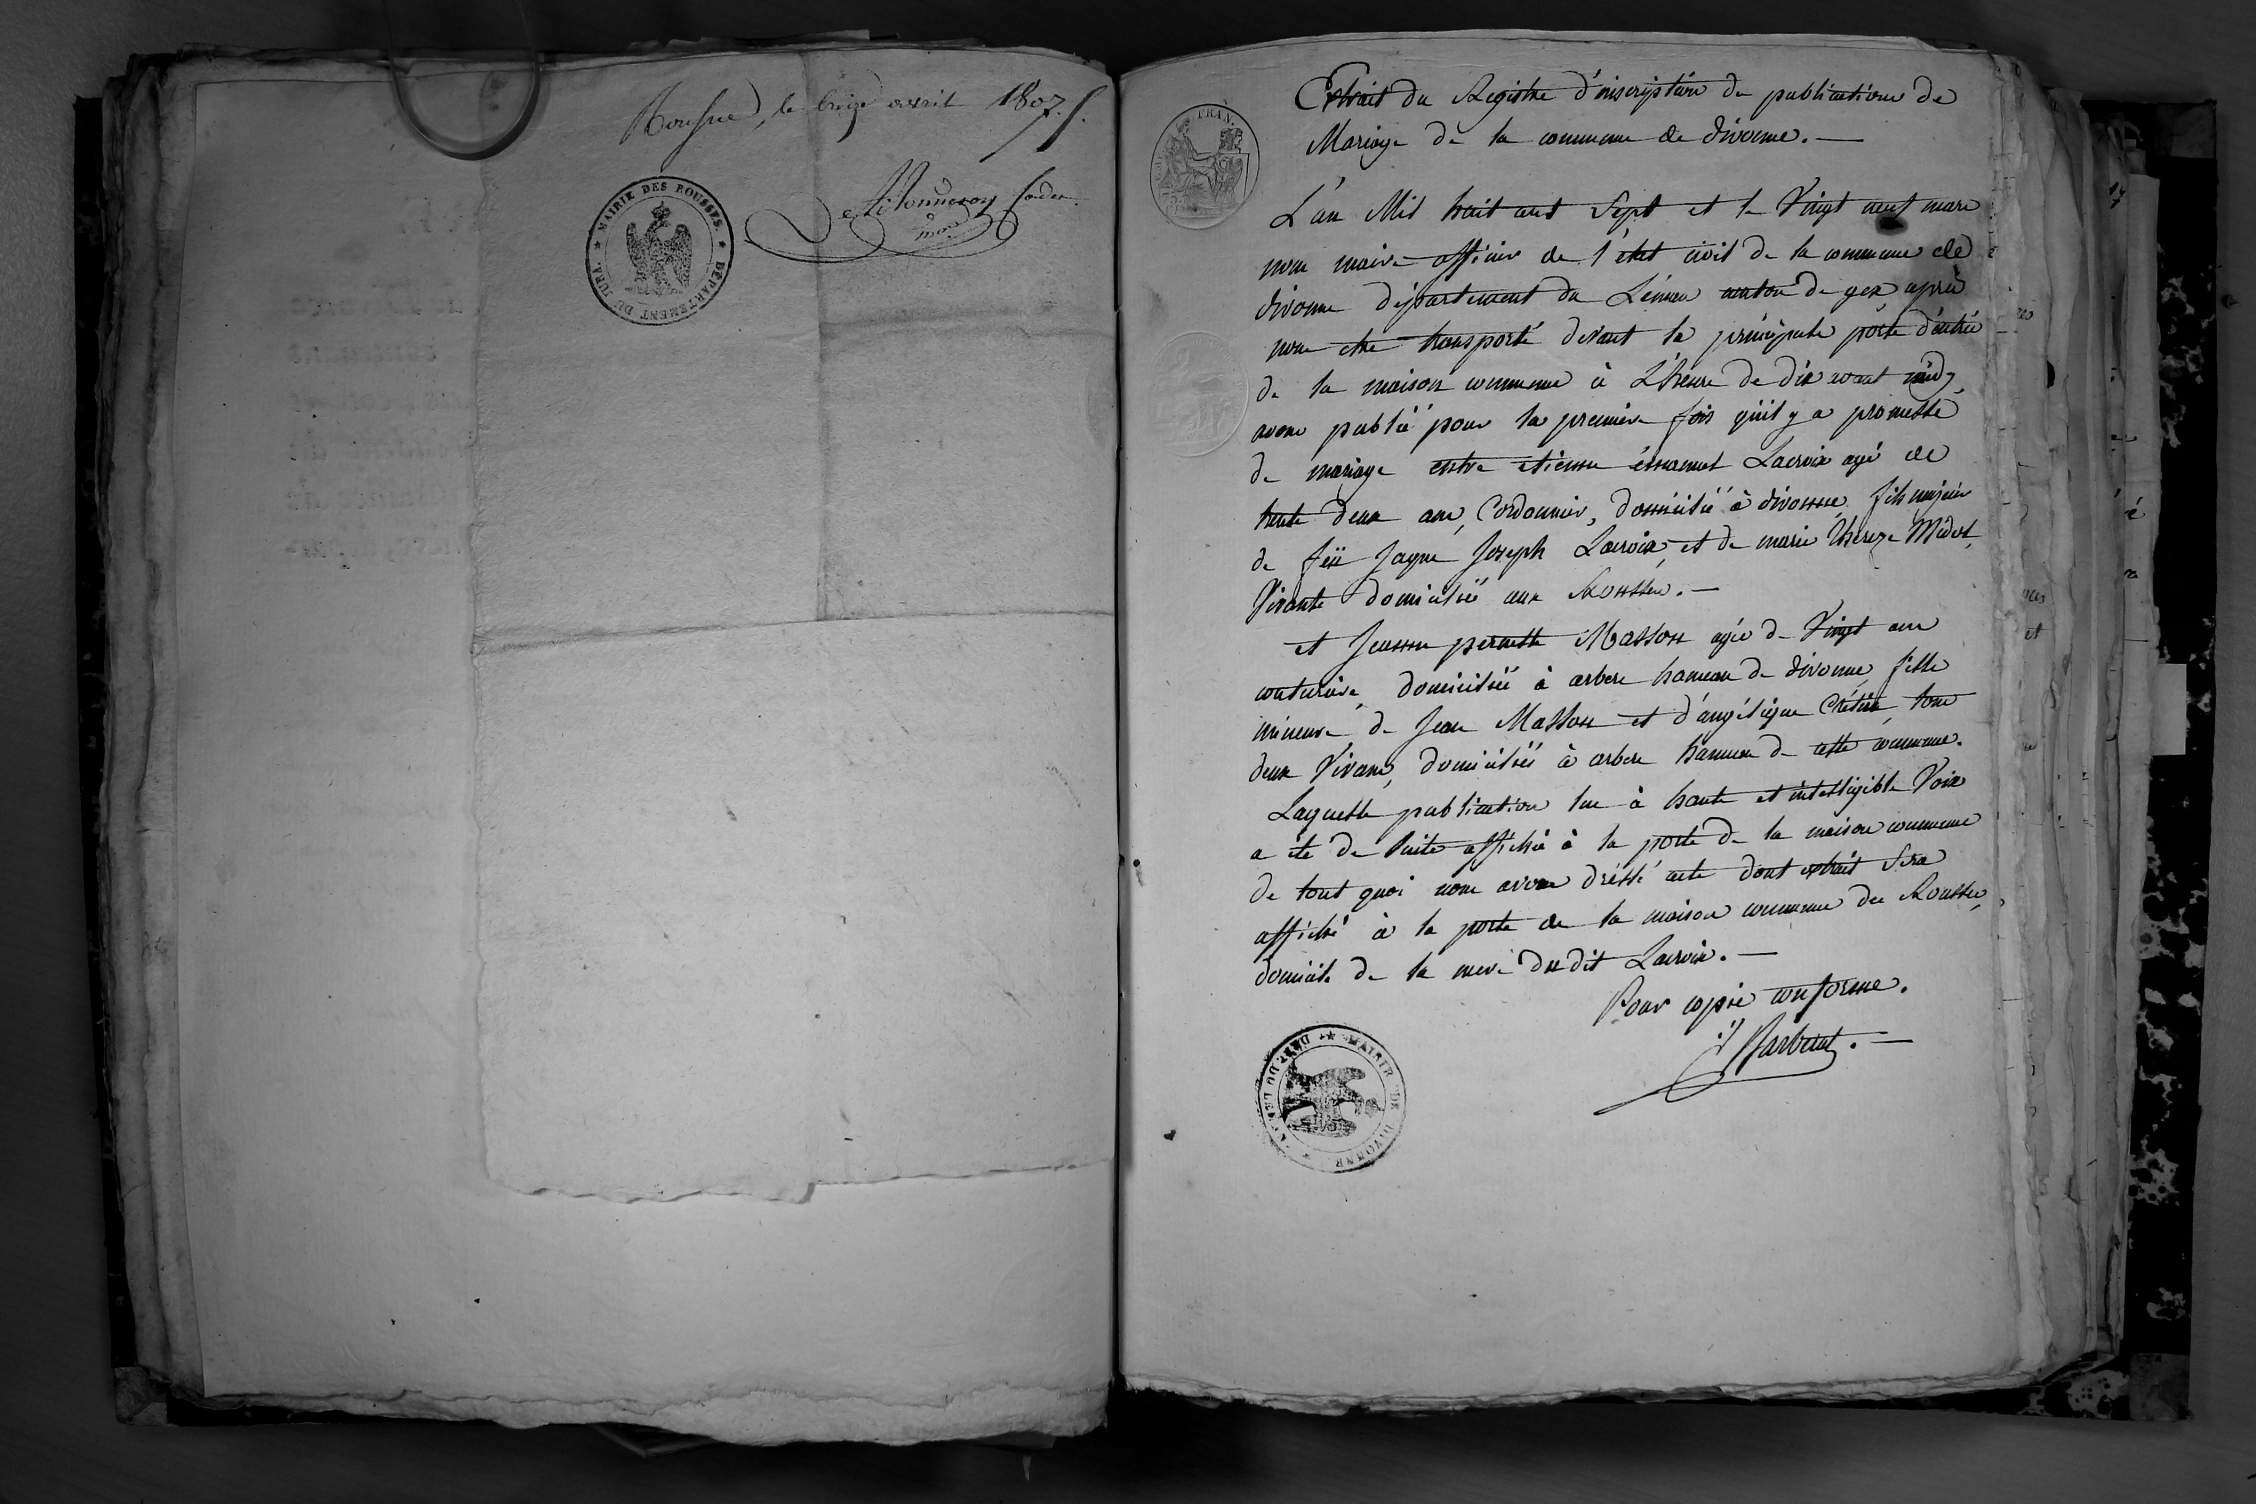 Rousse, le treize avril 1807.
MAIRIE DES ROUSSES. ★ DÉPARTEMENT DU JURA. ★
Extrait du Registre d'inscription de publications de
Mariage de la commune de divonne. —
L'an Mil huit cent Sept et le Vingt neuf mars
nous maire officier de l'état civil de la commune de
divonne département du Léman canton de gex après
nous etre transporté devant la principale porte d'entrée
de la maison commune à L'heure de dix avant midy
avons publié pour la premiere fois qu'il y a promesse
de mariage entre etienne Lacroix agé de
trente deux ans, Cordonnier, domicilié à divonne, fils majeur
de feü Jaque Joseph Lacroix, et de marie Thereze
Vivante domiciliée aux Rousses. —
et Jeanne pernette Masson agée de Vingt ans
couturiere, domiciliée à arbere hameau de divonne, fille
mineure de Jean Masson et d'angélique tous
deux Vivans, domiciliés à arbere hameau de cette commune.
Laquelle publication lue à haute et intelligible Voix
a été de Suite affichée à la porte de la maison commune
de tout quoi nous avons dréssé acte dont extrait Sera
affiché à la porte de la maison commune des Rousses,
domicile de la mere du dit Lacroix. —
Pour copie conforme.
MAIRIE DE DIVONNE ★ DEPT. DU LEMAN ★